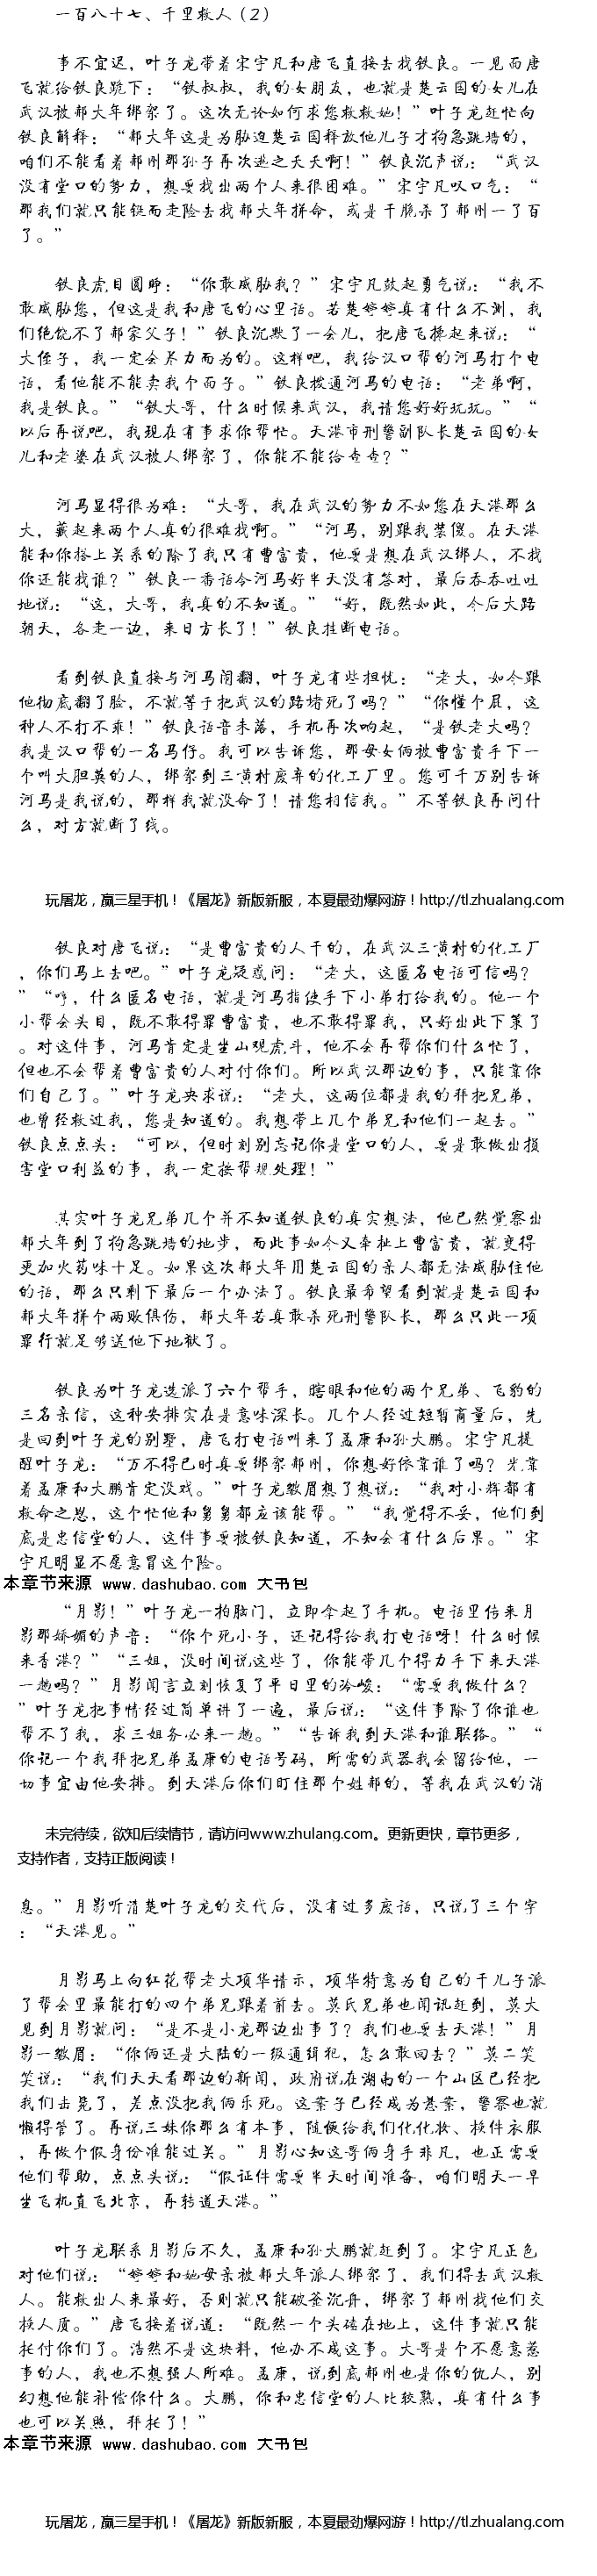 一百八十七、千里救人（2）
事不宜迟，叶子龙带着宋宇凡和唐飞直接去找铁良。一见面唐
飞就给铁良跪下：“铁叔叔，我的女朋友，也就是楚云国的女儿在
武汉被郝大年绑架了。这次无论如何求您救救她！”叶子龙赶忙向
铁良解释：“郝大年这是为胁迫楚云国释放他儿子才狗急跳墙的，
咱们不能看着郝刚那孙子再次逃之夭夭啊！”铁良沉声说：“武汉
没有堂口的势力，想要找出两个人来很困难。”宋宇凡叹口气：“
那我们就只能铤而走险去找郝大年拼命，或是干脆杀了郝刚一了百
了。”
铁良虎目圆睁：“你敢威胁我？”宋宇凡鼓起勇气说：“我不
敢威胁您，但这是我和唐飞的心里话。若楚婷婷真有什么不测，我
们绝饶不了郝家父子！”铁良沉默了一会儿，把唐飞搀起来说：“
大侄子，我一定会尽力而为的。这样吧，我给汉口帮的河马打个电
话，看他能不能卖我个面子。”铁良拨通河马的电话：“老弟啊，
我是铁良。”“铁大哥，什么时候来武汉，我请您好好玩玩。”“
以后再说吧，我现在有事求你帮忙。天港市刑警副队长楚云国的女
儿和老婆在武汉被人绑架了，你能不能给查查？”
河马显得很为难：“大哥，我在武汉的势力不如您在天港那么
大，藏起来两个人真的很难找啊。”“河马，别跟我装傻。在天港
能和你搭上关系的除了我只有曹富贵，他要是想在武汉绑人，不找
你还能找谁？”铁良一番话令河马好半天没有答对，最后吞吞吐吐
地说：“这，大哥，我真的不知道。”“好，既然如此，今后大路
朝天，各走一边，来日方长了！”铁良挂断电话。
看到铁良直接与河马闹翻，叶子龙有些担忧：“老大，如今跟
他彻底翻了脸，不就等于把武汉的路堵死了吗？”“你懂个屁，这
种人不打不乖！”铁良话音未落，手机再次响起，“是铁老大吗？
我是汉口帮的一名马仔。我可以告诉您，那母女俩被曹富贵手下一
个叫大胆英的人，绑架到三黄村废弃的化工厂里。您可千万别告诉
河马是我说的，那样我就没命了！请您相信我。”不等铁良再问什
么，对方就断了线。
玩屠龙，赢三星手机！《屠龙》新版新服，本夏最劲爆网游！http://tl.zhualang.com
铁良对唐飞说：“是曹富贵的人干的，在武汉三黄村的化工厂
，你们马上去吧。”叶子龙疑惑问：“老大，这匿名电话可信吗？
”“哼，什么匿名电话，就是河马指使手下小弟打给我的。他一个
小帮会头目，既不敢得罪曹富贵，也不敢得罪我，只好出此下策了
。对这件事，河马肯定是坐山观虎斗，他不会再帮你们什么忙了，
但也不会帮着曹富贵的人对付你们。所以武汉那边的事，只能靠你
们自己了。”叶子龙央求说：“老大，这两位都是我的拜把兄弟，
也曾经救过我，您是知道的。我想带上几个弟兄和他们一起去。”
铁良点点头：“可以，但时刻别忘记你是堂口的人，要是敢做出损
害堂口利益的事，我一定按帮规处理！”
其实叶子龙兄弟几个并不知道铁良的真实想法，他已然觉察出
郝大年到了狗急跳墙的地步，而此事如今又牵扯上曹富贵，就变得
更加火药味十足。如果这次郝大年用楚云国的亲人都无法威胁住他
的话，那么只剩下最后一个办法了。铁良最希望看到就是楚云国和
郝大年拼个两败俱伤，郝大年若真敢杀死刑警队长，那么只此一项
罪行就足够送他下地狱了。
铁良为叶子龙选派了六个帮手，瞎眼和他的两个兄弟、飞豹的
三名亲信，这种安排实在是意味深长。几个人经过短暂商量后，先
是回到叶子龙的别墅，唐飞打电话叫来了孟康和孙大鹏。宋宇凡提
醒叶子龙：“万不得已时真要绑架郝刚，你想好依靠谁了吗？光靠
着孟康和大鹏肯定没戏。”叶子龙皱眉想了想说：“我对小辉都有
救命之恩，这个忙他和舅舅都应该能帮。”“我觉得不妥，他们到
底是忠信堂的人，这件事要被铁良知道，不知会有什么后果。”宋
宇凡明显不愿意冒这个险。
本章节来源 www.dashubao.com 大书包
“月影！”叶子龙一拍脑门，立即拿起了手机。电话里传来月
影那娇媚的声音：“你个死小子，还记得给我打电话呀！什么时候
来香港？”“三姐，没时间说这些了，你能带几个得力手下来天港
一趟吗？”月影闻言立刻恢复了平日里的冷峻：“需要我做什么？
”叶子龙把事情经过简单讲了一遍，最后说：“这件事除了你谁也
帮不了我，求三姐务必来一趟。”“告诉我到天港和谁联络。”“
你记一个我拜把兄弟孟康的电话号码，所需的武器我会留给他，一
切事宜由他安排。到天港后你们盯住那个姓郝的，等我在武汉的消
未完待续，欲知后续情节，请访问www.zhulang.com。更新更快，章节更多，
支持作者，支持正版阅读！
息。”月影听清楚叶子龙的交代后，没有过多废话，只说了三个字
：“天港见。”
月影马上向红花帮老大项华请示，项华特意为自己的干儿子派
了帮会里最能打的四个弟兄跟着前去。莫氏兄弟也闻讯赶到，莫大
见到月影就问：“是不是小龙那边出事了？我们也要去天港！”月
影一皱眉：“你俩还是大陆的一级通缉犯，怎么敢回去？”莫二笑
笑说：“我们天天看那边的新闻，政府说在湖南的一个山区已经把
我们击毙了，差点没把我俩乐死。这案子已经成为悬案，警察也就
懒得管了。再说三妹你那么有本事，随便给我们化化妆、换件衣服
，再做个假身份准能过关。”月影心知这哥俩身手非凡，也正需要
他们帮助，点点头说：“假证件需要半天时间准备，咱们明天一早
坐飞机直飞北京，再转道天港。”
叶子龙联系月影后不久，孟康和孙大鹏就赶到了。宋宇凡正色
对他们说：“婷婷和她母亲被郝大年派人绑架了，我们得去武汉救
人。能救出人来最好，否则就只能破釜沉舟，绑架了郝刚找他们交
换人质。”唐飞接着说道：“既然一个头磕在地上，这件事就只能
托付你们了。浩然不是这块料，他办不成这事。大哥是个不愿意惹
事的人，我也不想强人所难。孟康，说到底郝刚也是你的仇人，别
幻想他能补偿你什么。大鹏，你和忠信堂的人比较熟，真有什么事
也可以关照，拜托了！”
本章节来源 www.dashubao.com 大书包
玩屠龙，赢三星手机！《屠龙》新版新服，本夏最劲爆网游！http://tl.zhualang.com